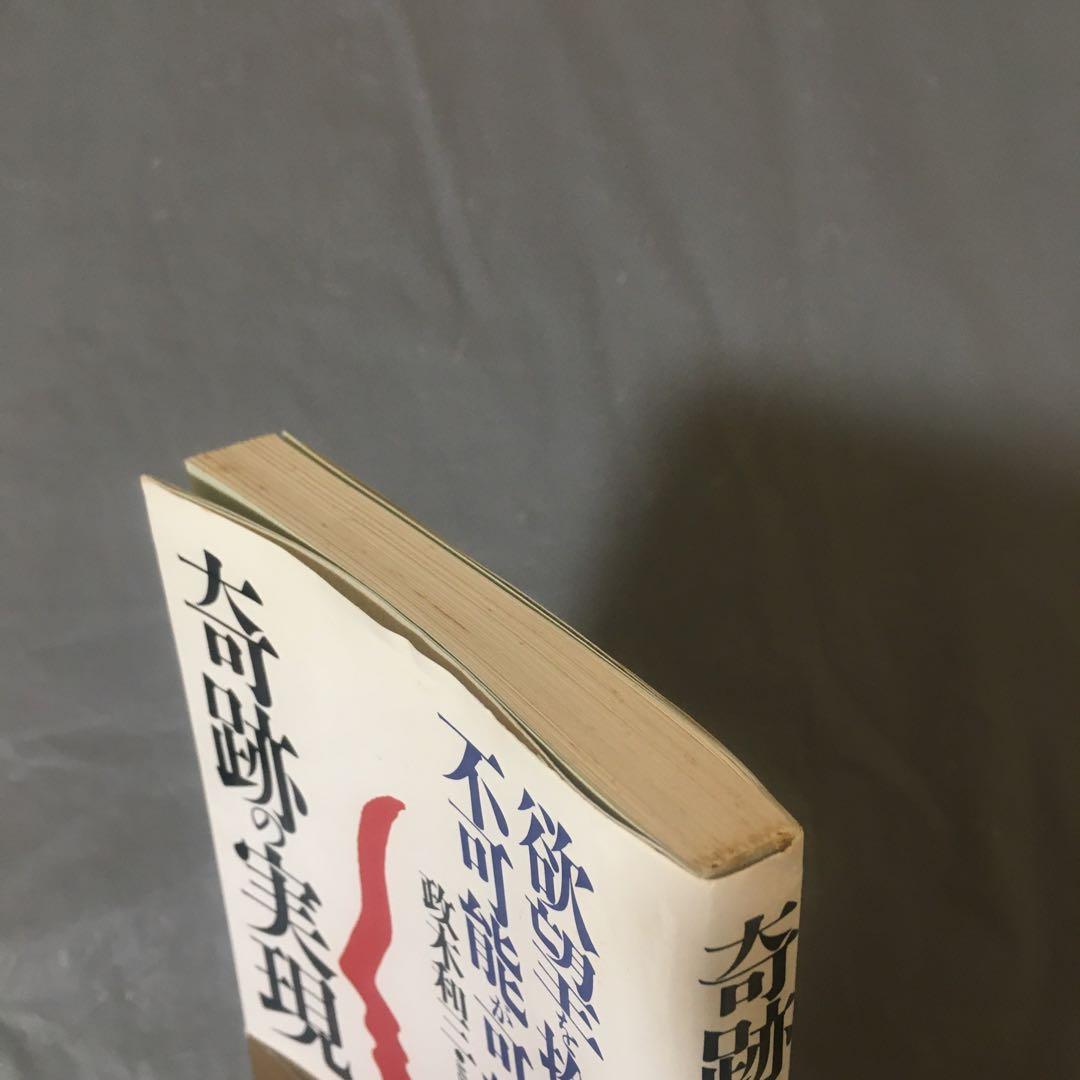 欲望を捨
不可能が可
政木和三
奇跡の実現
奇跡